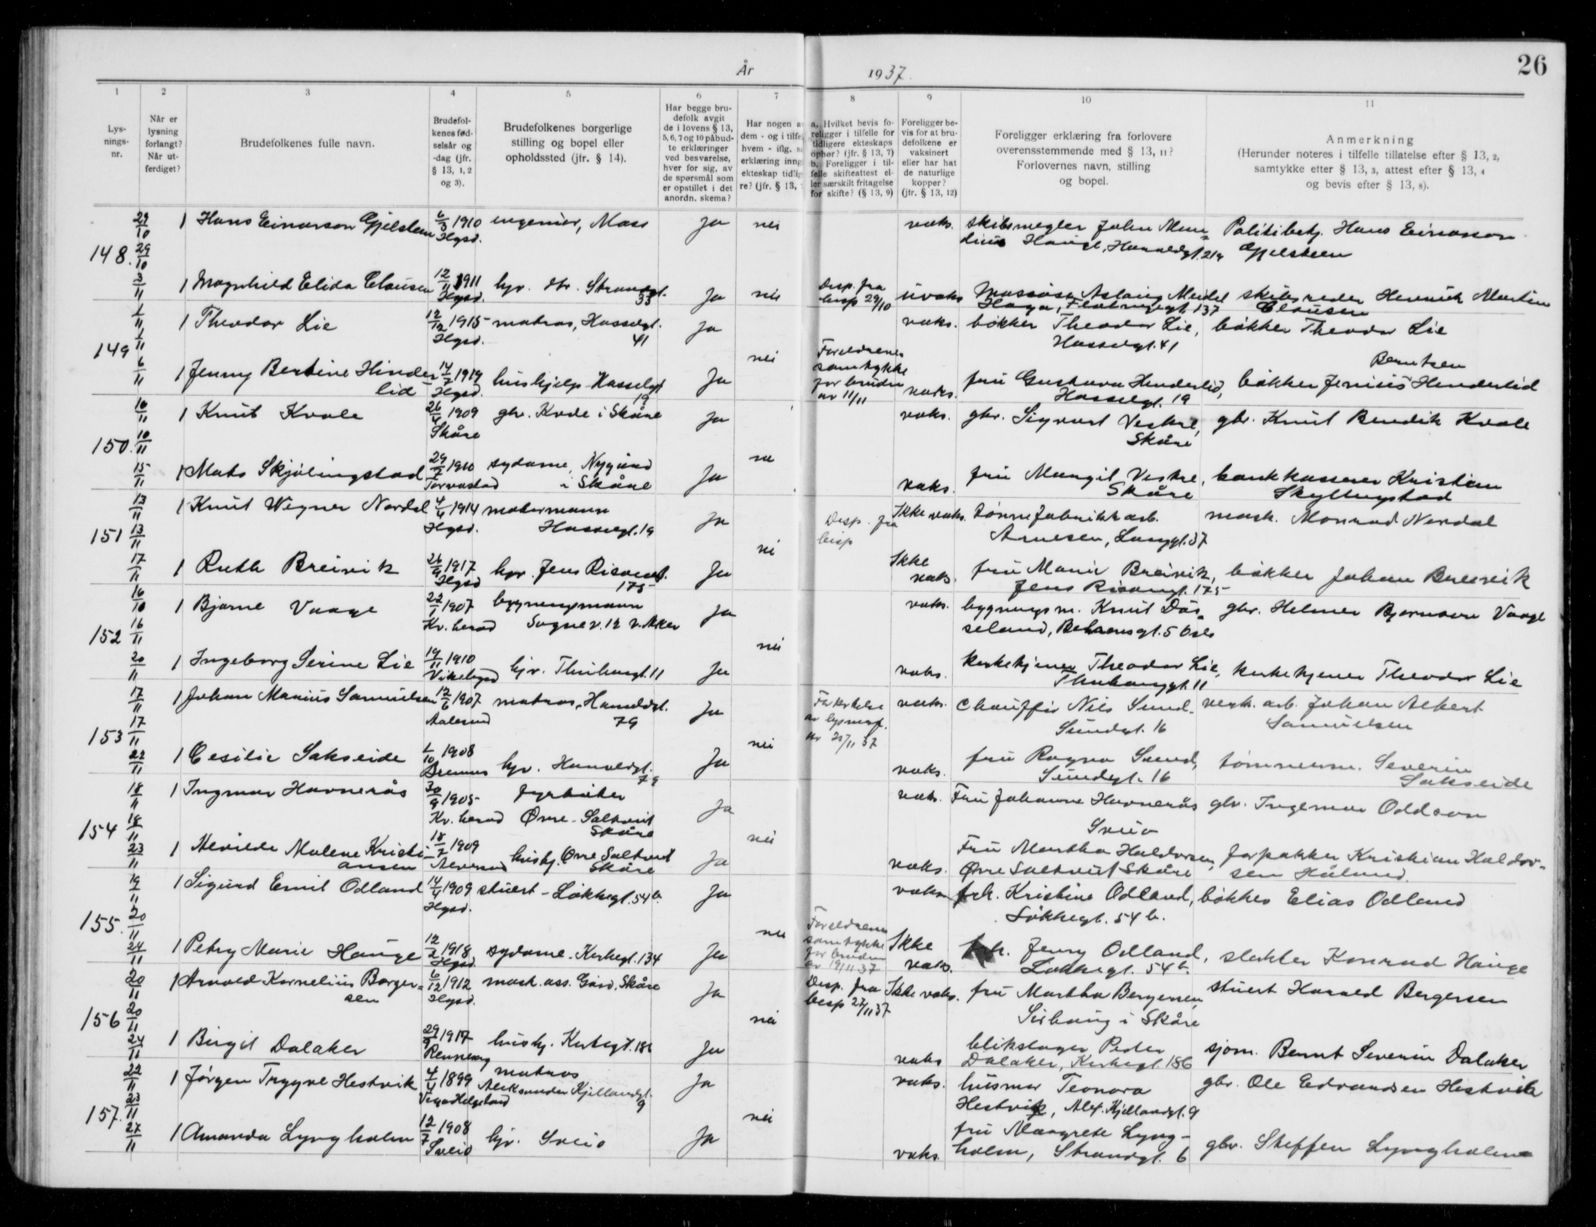 26
År 1937.
1 2 3 4 5 6 7 8 9 10 11
Lys-
nings-
nr.
Når er
lysning
forlangt?
Når ut-
ferdiget?
Brudefolkenes fulle navn.
Brudefol-
kenes fød-
selsår og
-dag (jfr.
§ 13, 1, 2
og 3).
Brudefolkenes borgerlige
stilling og bopel eller
opholdssted (jfr. § 14).
Har begge bru-
defolk avgit
de i lovens § 13,
5, 6, 7 og 10 påbud-
te erklæringer
ved besvarelse,
hver for sig, av
de spørsmål som
er opstillet i det
anordn. skema?
Har nogen a
dem - og i tilfe
hvem - iflg.
erklæring inng
ekteskap tidlig
re? (jfr. § 13,
a. Hvilket bevis fo-
religger i tilfelle for
tidligere ekteskaps
ophør? (jfr. § 13, 7)
b. Foreligger i til-
felle skifteattest el-
ler særskilt fritagelse
for skifte? (§ 13, 9)
Foreligger be-
vis for at bru-
defolkene er
vaksinert
eller har hat
de naturlige
kopper?
(jfr. § 13, 12)
Foreligger erklæring fra forlovere
overensstemmende med § 13, 11?
Forlovernes navn, stilling
og bopel.
Anmerkning
(Herunder noteres i tilfelle tillatelse efter § 13, 2,
samtykke etter § 13, 3, attest efter § 13, 4
og bevis efter § 13, 8).
148. 29/10
1 Hans Einarson Gjelsteen 6/3 1910 Hgsd. ingeniør, Moss Ja nei vaks. skibsmegler John Mon-
dius Hauge, Haraldsgt. 214 Politibetj. Hans Einarson
Gjelsteen
3/11 1 Magnhild Elida Clausen 12/11 1911 Hgsd. hjv. dtr. Strandgt. 33 Ja nei Disp. fra
bisp 29/10 uvaks Massøse Aslaug Meidel
Hauge, 137 skibsreder Henrik Martin
Clausen
149 1/11
1 Theodor Lie 12/12 1915 Hgsd. matros, Hasselgt. 41 Ja vaks. bøkker Theodor Lie,
Hasselgt. 41 bøkker Theodor Lie
6/11 1 Jenny Bertine Hinder-
lid 14/7 1919 Hgsd. hushjelp Hasselgt. 19 Ja nei Foreldrenes
samtykke
for bruden
av 11/11 vaks. fru Gustava Henderlid,
Hasselgt. 19 Berntsen
bøkker Jenius Henderlid
150. 10/11
10/11 1 Knut Kvale 26/6 1909 Skåre gbr. Kvale i Skåre Ja vaks. gbr. Sigvart Vestre,
Skåre gbr. Knut Bendik Kvale
15/11 1 Mats Skjølingstad 29/7 1910 Torvastad sydame, Nygård
i Skåre Ja nei vaks. fru Margit Vestre,
Skåre bankkasserer Kristian
Skyllingstad
151 13/11
13/11 1 Knut Wigner Nordal 4/4 1914 Hgsd. malermann
Hasselgt. 19 Ja Disp. fra
bisp Ikke vaks. tønnefabrikkarb.
Arnesen, Langgt. 37 mask. Monrad Nordal
17/11 1 Ruth Breivik 26/9 1917 Hgsd hjv. Jens Risøesgt.
175 Ja nei Ikke
vaks. fru Marie Breivik,
Jens Risøesgt. 175 bøkker Johan Breivik
152 16/11
16/10 1 Bjarne Vaage 22/1 1907 Kv.herad bygningsmann
Sognev. 12 V. Aker Ja vaks. bygningsm. Knut Dås-
seland, Behrensgt. 5 Oslo gbr. Helmer Bjørnson Vaage
20/11 1 Ingeborg Serine Lie 19/11 1910 Vikebygd hjv. Thuhaugt. 11 Ja nei vaks. kirketjener Theodor Lie,
Thuhauggt. 11 kirketjener Theodor Lie
153 17/11
17/11 1 Johan Marius Samuelsen 12/6 1907 Aalesund matros, Haraldsgt.
79 Ja vaks. Chauffør Nils Sund,
Sundgt. 16 verk. arb. Johan Albert
Samuelsen
22/11 1 Cesilie Sakseide 1/10 1908 Bremnes hjv. Haraldsgt.
79 Ja nei vaks. fru Ragna Sund,
Sundgt. 16 tømmerm. Severin
Sakseide
154 18/11
18/11 1 Ingmar Havnerås 30/9 1905 Kv. herad fyrbøter
Øvre Saltveit
Skåre Ja vaks. Fru Johanne Havnerås
Sveio gbr. Ingemar Oddson
23/11 1 Malene Kristi-
ansen 18/2 1909 hushj. Øvre Saltveit
Skåre Ja nei vaks. Fru Martha Haldorsen,
Øvre Saltveit Skåre forpakter Kristian Haldor-
sen
155. 20/11
19/11 1 Sigurd Emil Odland 14/4 1909 Hgsd. stuert - Løkkegt. 54 b Ja vaks. frk. Kristine Odland,
Løkkegt. 54 b. bøkker Elias Odland
24/11 1 Petry Marie Hauge 12/2 1918 Hgsd sydame. Kirkegt. 134 Ja nei Foreldrenes
samtykke
for bruden
av 19/11 37 Ikke
vaks. frk. Jenny Odland,
Løkkegt. 54 b. slakter Konrad Hauge
156 20/11
20/11 1 Arnold Kornelius Berger-
sen 6/12 1912 Hgsd. mask. ass. Gård. Skåre Ja Disp. fra
bisp 27/11 37 Ikke vaks. fru Martha Bergersen
i Skåre stuert Harald Bergersen
24/11 1 Birgit Dalaker 29/9 1917 Rennesøy hushj. Kirkegt. 186 Ja nei vaks blikslager Peder
Dalaker, Kirkegt. 186 sjøm. Bernt Severin Dalaker
157. 23/11
22/11 1 Jørgen Trygve Hestvik 4/4 1899 Vega Helgeland matros
Aleksander Kjellandsgt.
9 Ja vaks. husmor Teonora
Hestvik, Alex. Kjellandsgt. 9 gbr. Ole Edvardsen Hestvik
27/11 1 Amanda Lyngholm 12/7 1908 Sveio hjv. Sveio Ja nei vaks. fru Margrete Lyng-
holm, Strandgt. 6 gbr. Steffen Lyngholm